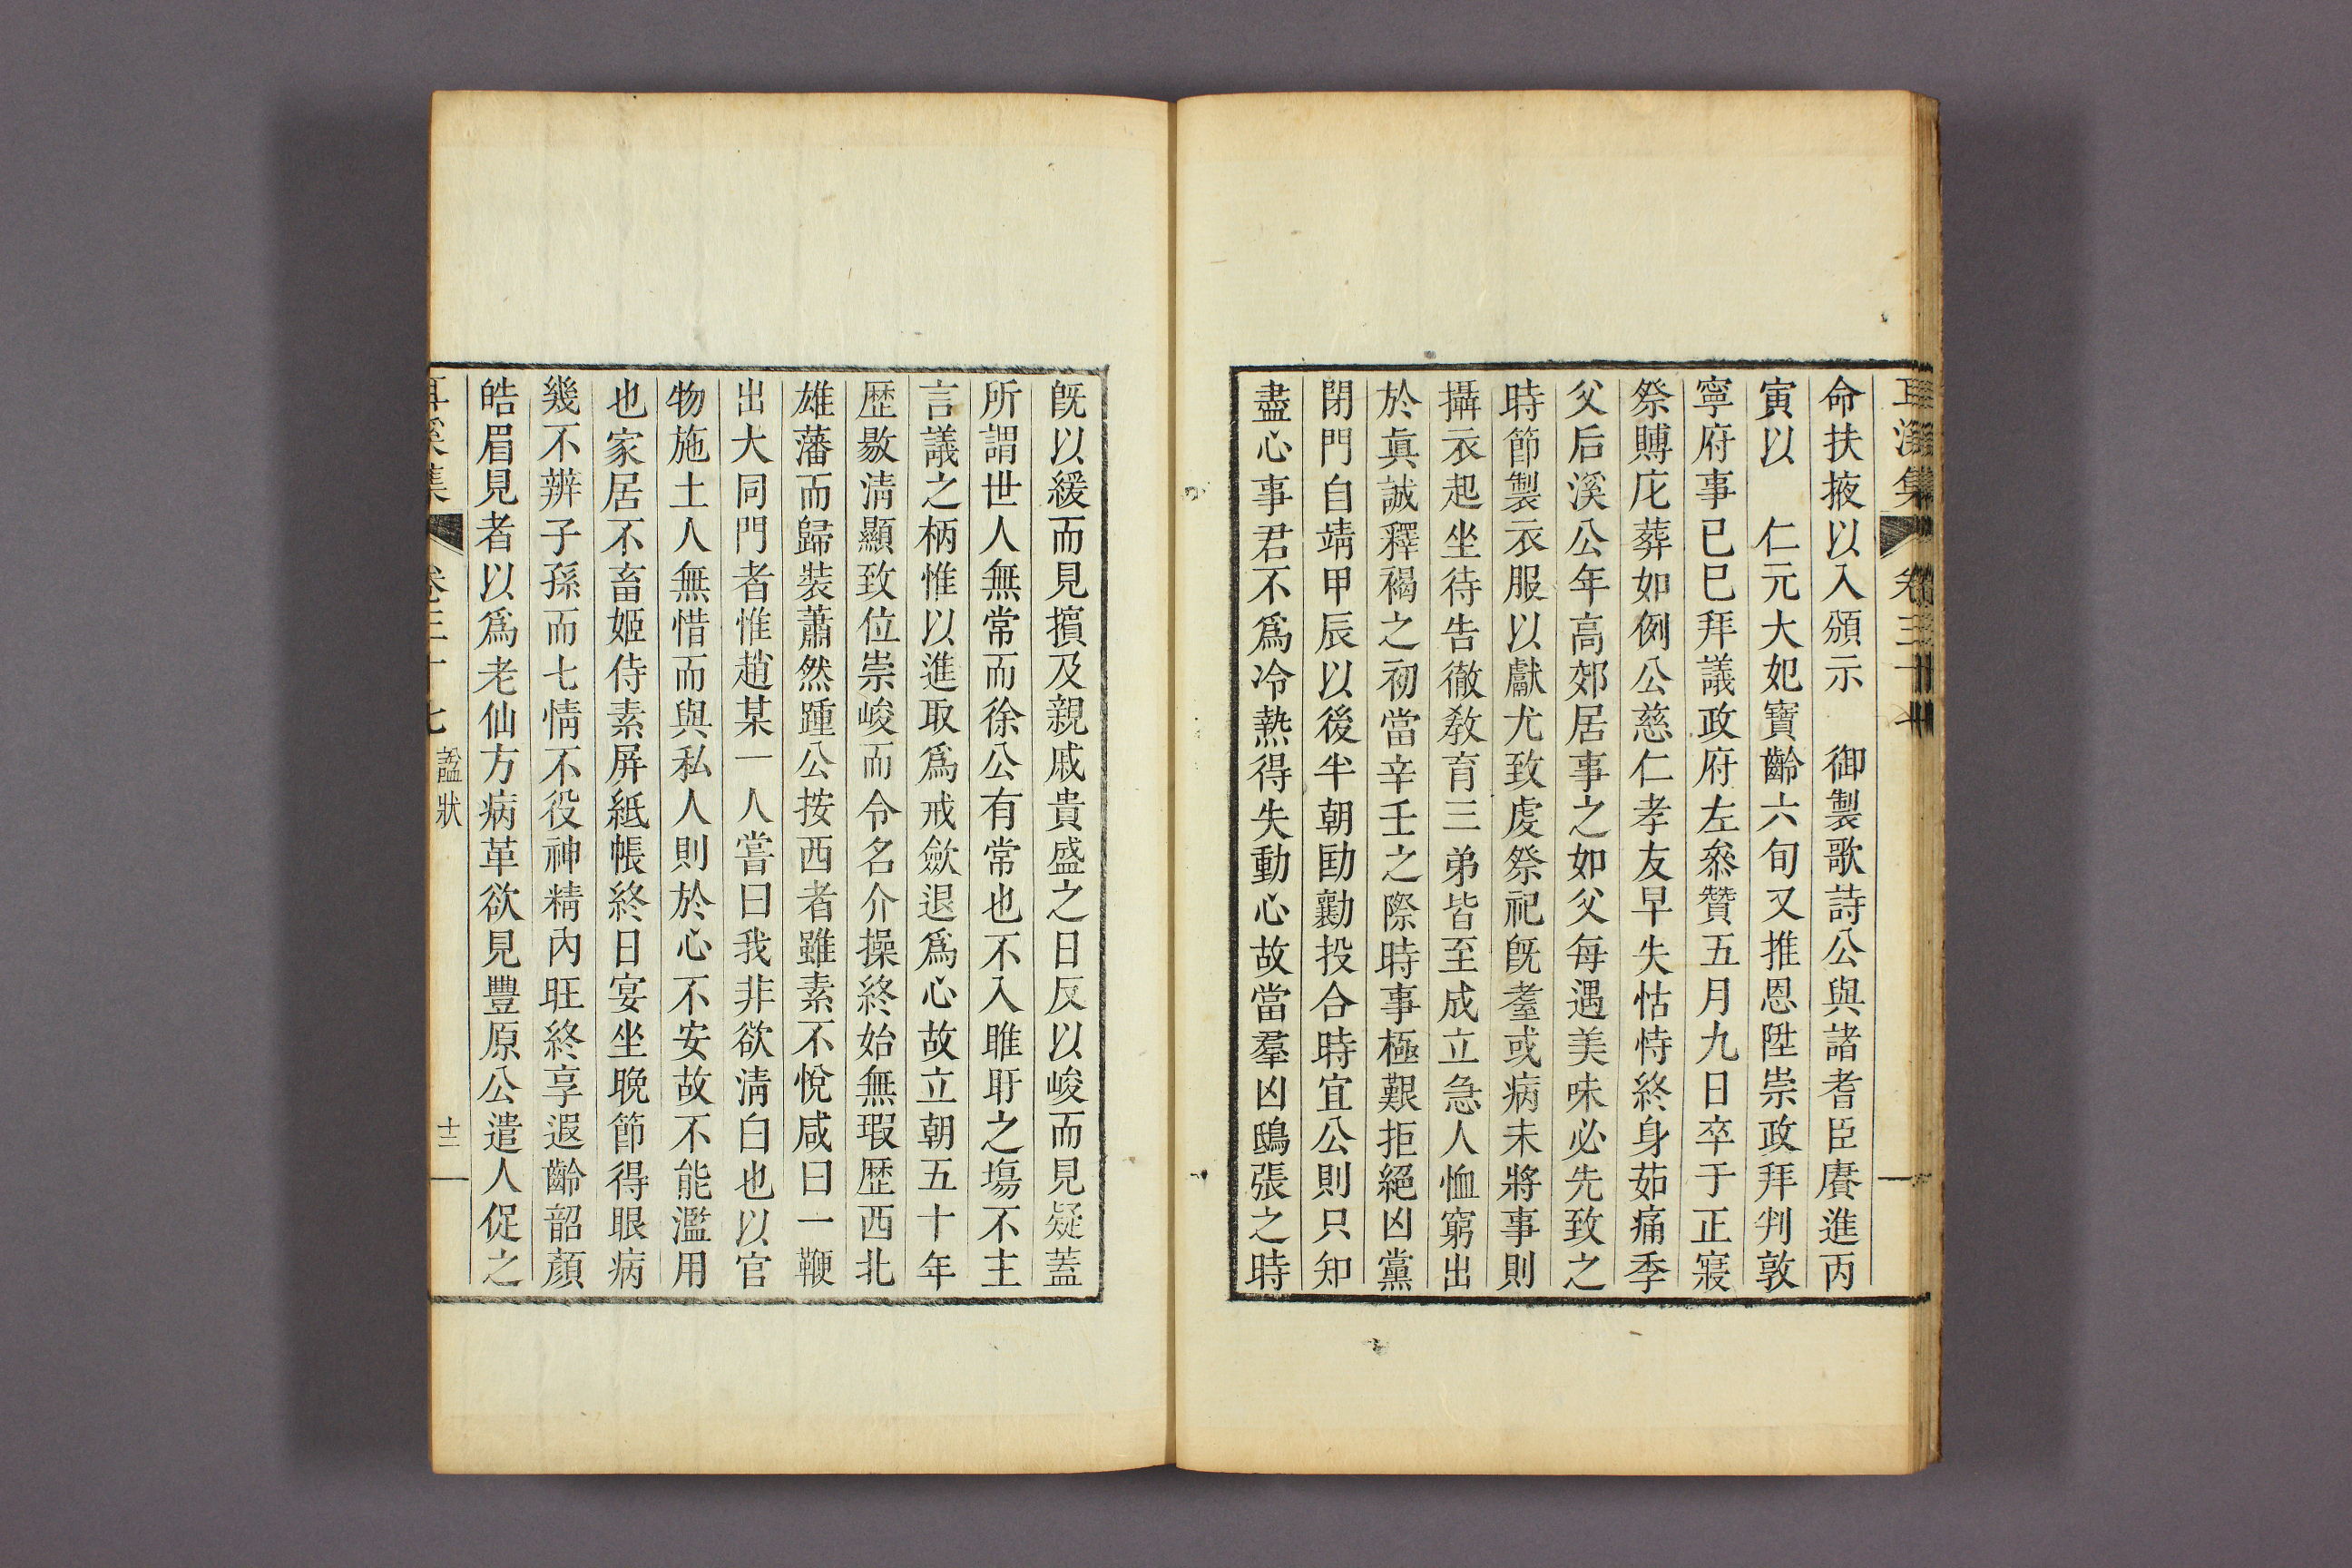 耳溪集 卷三十七
命扶掖以入頒示 御製歌詩公與諸耆臣賡進丙
寅以 仁元大妃寶齡六旬又推恩陞崇政拜判敦
寧府事已巳拜議政府左叅贊五月九日卒于正寢
祭賻庀葬如例公慈仁孝友早失怙恃終身茹痛季
父后溪公年高郊居事之如父每遇美味必先致之
時節製衣服以獻尤致虔祭祀旣耋或病未將事則
攝衣起坐待告徹敎育三弟皆至成立急人恤窮出
於眞誠釋褐之初當辛壬之際時事極艱拒絕凶黨
閉門自靖甲辰以後半朝劻勷投合時宜公則只知
盡心事君不爲冷熱得失動心故當羣凶鴟張之時
旣以緩而見擯及親戚貴盛之日反以峻而見疑蓋
所謂世人無常而徐公有常也不入睢盱之塲不主
言議之柄惟以進取爲戒歛退爲心故立朝五十年
歷敭淸顯致位崇峻而令名介操終始無瑕歷西北
雄藩而歸裝蕭然踵公按西者雖素不悅咸曰一鞭
出大同門者惟趙某一人嘗曰我非欲淸白也以官
物施土人無惜而與私人則於心不安故不能濫用
也家居不畜姬侍素屏紙帳終日宴坐晚節得眼病
幾不辨子孫而七情不役神精內旺終享遐齡韶顏
皓眉見者以爲老仙方病革欲見豐原公遣人促之
耳溪集 卷三十七 諡狀 十三